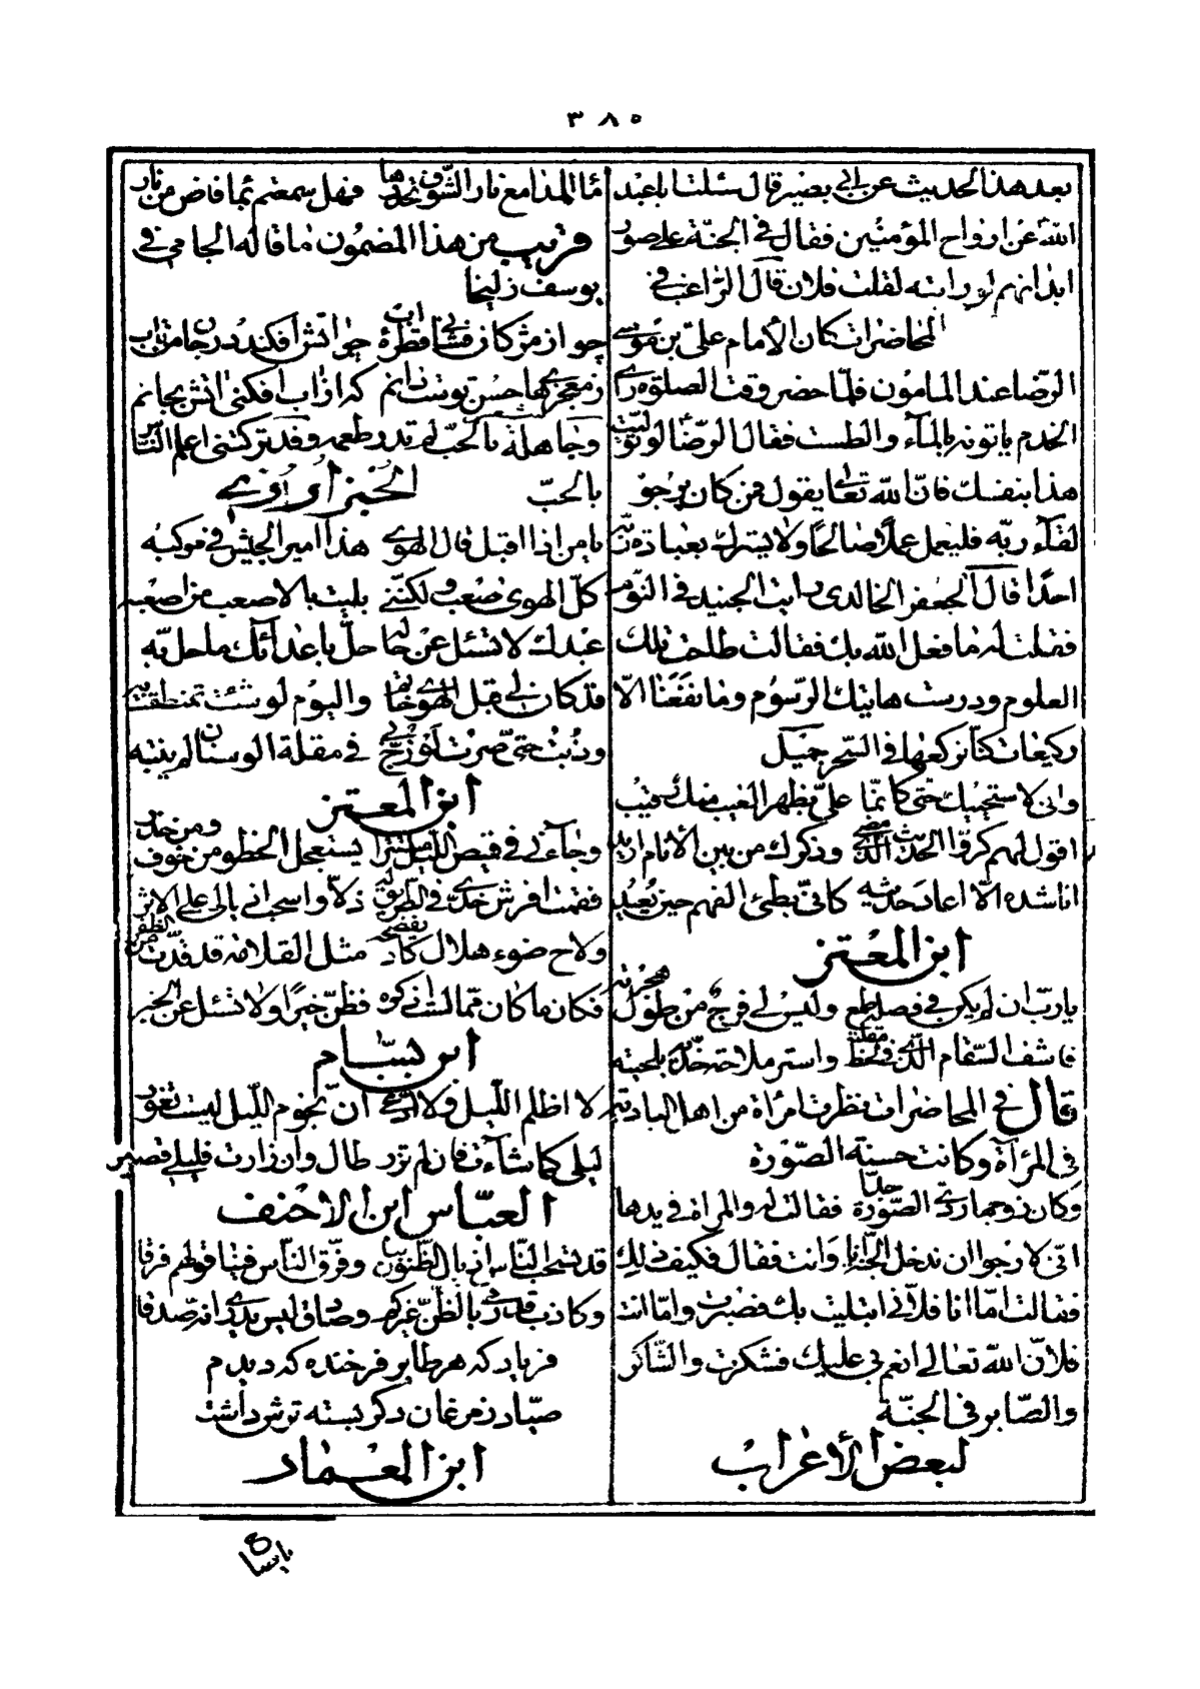 ٣٨٥
بعد هذا الحديث عن ابى بصير قال سئلت اباعبد
الله عن ارواح المؤمنين فقال فى الجنّة على صور
ابدانهم لو رايته لقلت فلان قال الراغب فى
المحاضرات كان الأمام علىّ بن موسى
الرضا عند المامون فلمّا حضر وقت الصلوة راى
الخدم ياتونه بالماء والطست فقال الرضا لو توليت
هذا بنفسك فانّ الله تعالى يقول فمن كان يرجو
لقاء ربّه فليعمل عملاً صالحًا ولا يشرك بعبادة ربّه
احدًا قال الجعفر الخالدى رايت الجنيد فى النّوم
فقلت له ما فعل الله بك فقالت طاحت تلك
العلوم ودرست هاتيك الرسوم وما نفعنا الّا
ركيعات كنّا نركعها فى السّحر جميل
وانى لا ستحييك حتى كانّما علىّ بظهر الغيب منك رقيب
اقول لهم كروا الحديث الذى مضى وذكرك من بين الأنام اريد
اناشده الّا اعاد حديثه كانّى بطئ الفهم حين يعيد
ابن المعتز
يا ربّ ان لم يكن فى وصله طمع وليس لى فرج من طول هجرته
فاشف السّقام الذى فى لحظ مقلته واستر ملاحة خدّيه بلحيته
قال فى المحاضرات نظرت امرأة من اهل البادية
فى المرآة وكانت حسنة الصّورة
وكان زوجها ردى الصّورة جدّا فقالت له والمراة فى يدها
انّى لا رجوا ان ندخل الجنّة انا وانت فقال فكيف ذلك
فقالت امّا انا فلأنى ابتليت بك فصبرت وامّا انت
فلانّ الله تعالى انعم بى عليك فشكرت والشّاكر
والصّابر فى الجنّة
لبعض الأعراب
ماء المدامع نار الشّوق تحدرها فهل سمعتم بماء فاض من نار
قريب من هذا المضمون ما قاله الجامى فى
يوسف زليخا
چو از مژگان فشانى قطره آب چو آتش افكند در جان من تاب
ز معجزهاى حسن توست دانم كه از آب افكنى آتش بجانم
وجاهلة بالحبّ لم تدر طعمه وقد تركتنى اعلم النّاس
بالحبّ الخبز أرزى
يا من اذا اقبل قال الهوى هذا امير الجيش فى موكبه
كلّ الهوى صعب ولكنّنى بليت بالاصعب من اصعبه
عبدك لا تسئل عن حاله حلّ باعدائك ما حلّ به
قد كان لى قبل الهوى خاتم واليوم لو شئت تمنطقت به
وذبت حتى صرت لو زجّ بى فى مقلة الوسنان لم ينتبه
ابن المعتز
وجاءنى فى قميص الليل مستترا يستعجل الخطو من خوف ومن حذر
فقمت افرش خدّى فى الطّريق له ذلّا واسحب اذيالى على الاثر
ولاح ضوء هلال كاد يفضحه مثل القلامة قد قدّت من الظفر
فكان ما كان ممّا لست اذكره فظنّ خيرًا ولا تسئل عن الخبر
ابن بسّام
لا اظلم الليل ولا ادّعى انّ نجوم اللّيل ليست تغور
ليلى كما شاءت فان لم تزر طال وان زارت فليلى قصير
العبّاس ابن الاحنف
قد سحب النّاس اذيال الظّنون بنا وفرّق النّاس فينا قولهم فرقا
وكاذب قد رمى بالظنّ غيركم وصادق ليس يدرى انّه صدقا
فرياد كه هر طاير فرخنده كه ديدم
صيّاد ز مرغان دگر بسته ترش داشت
ابن العماد